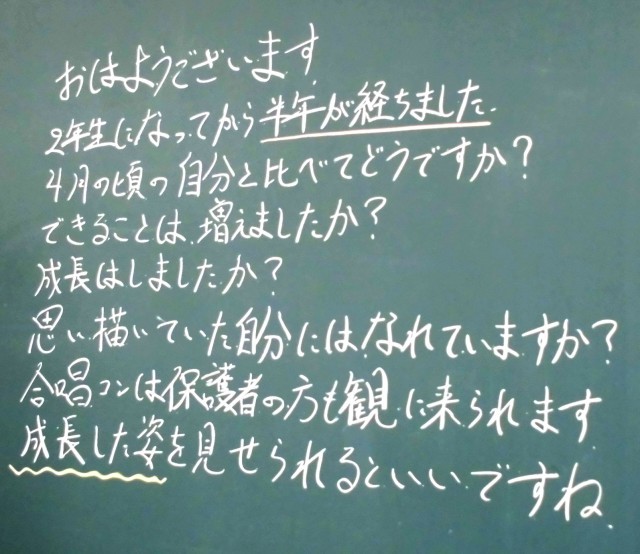 おはようございます
2年生になってから半年が経ちました.
4月の頃の自分と比べてどうですか?
できることは、増えましたか?
成長はしましたか?
思い描いていた自分にはなれていますか?
合唱コンは保護者の方も観に来られます
成長した姿を見せられるといいですね.